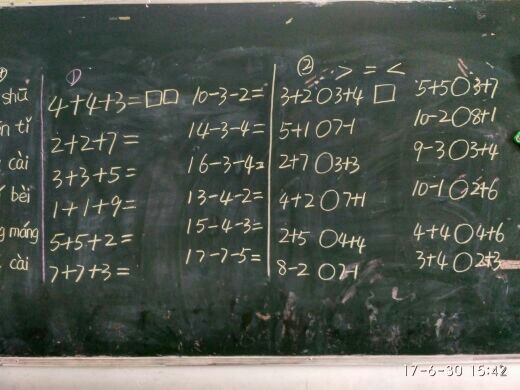 shū
tǐ
cài
bèi
máng
cài
①
4+4+3=□□
2+2+7=
3+3+5=
1+1+9=
5+5+2=
7+7+3=
10-3-2=
14-3-4=
16-3-4=
13-4-2=
15-4-3=
17-7-5=
② > = <
3+2○3+4 □
5+1○7-1
2+7○3+3
4+2○7+1
2+5○4+4
8-2○7-1
5+5○3+7
10-2○8+1
9-3○3+4
10-1○2+6
4+4○4+6
3+4○2+3
17-6-30 15:42